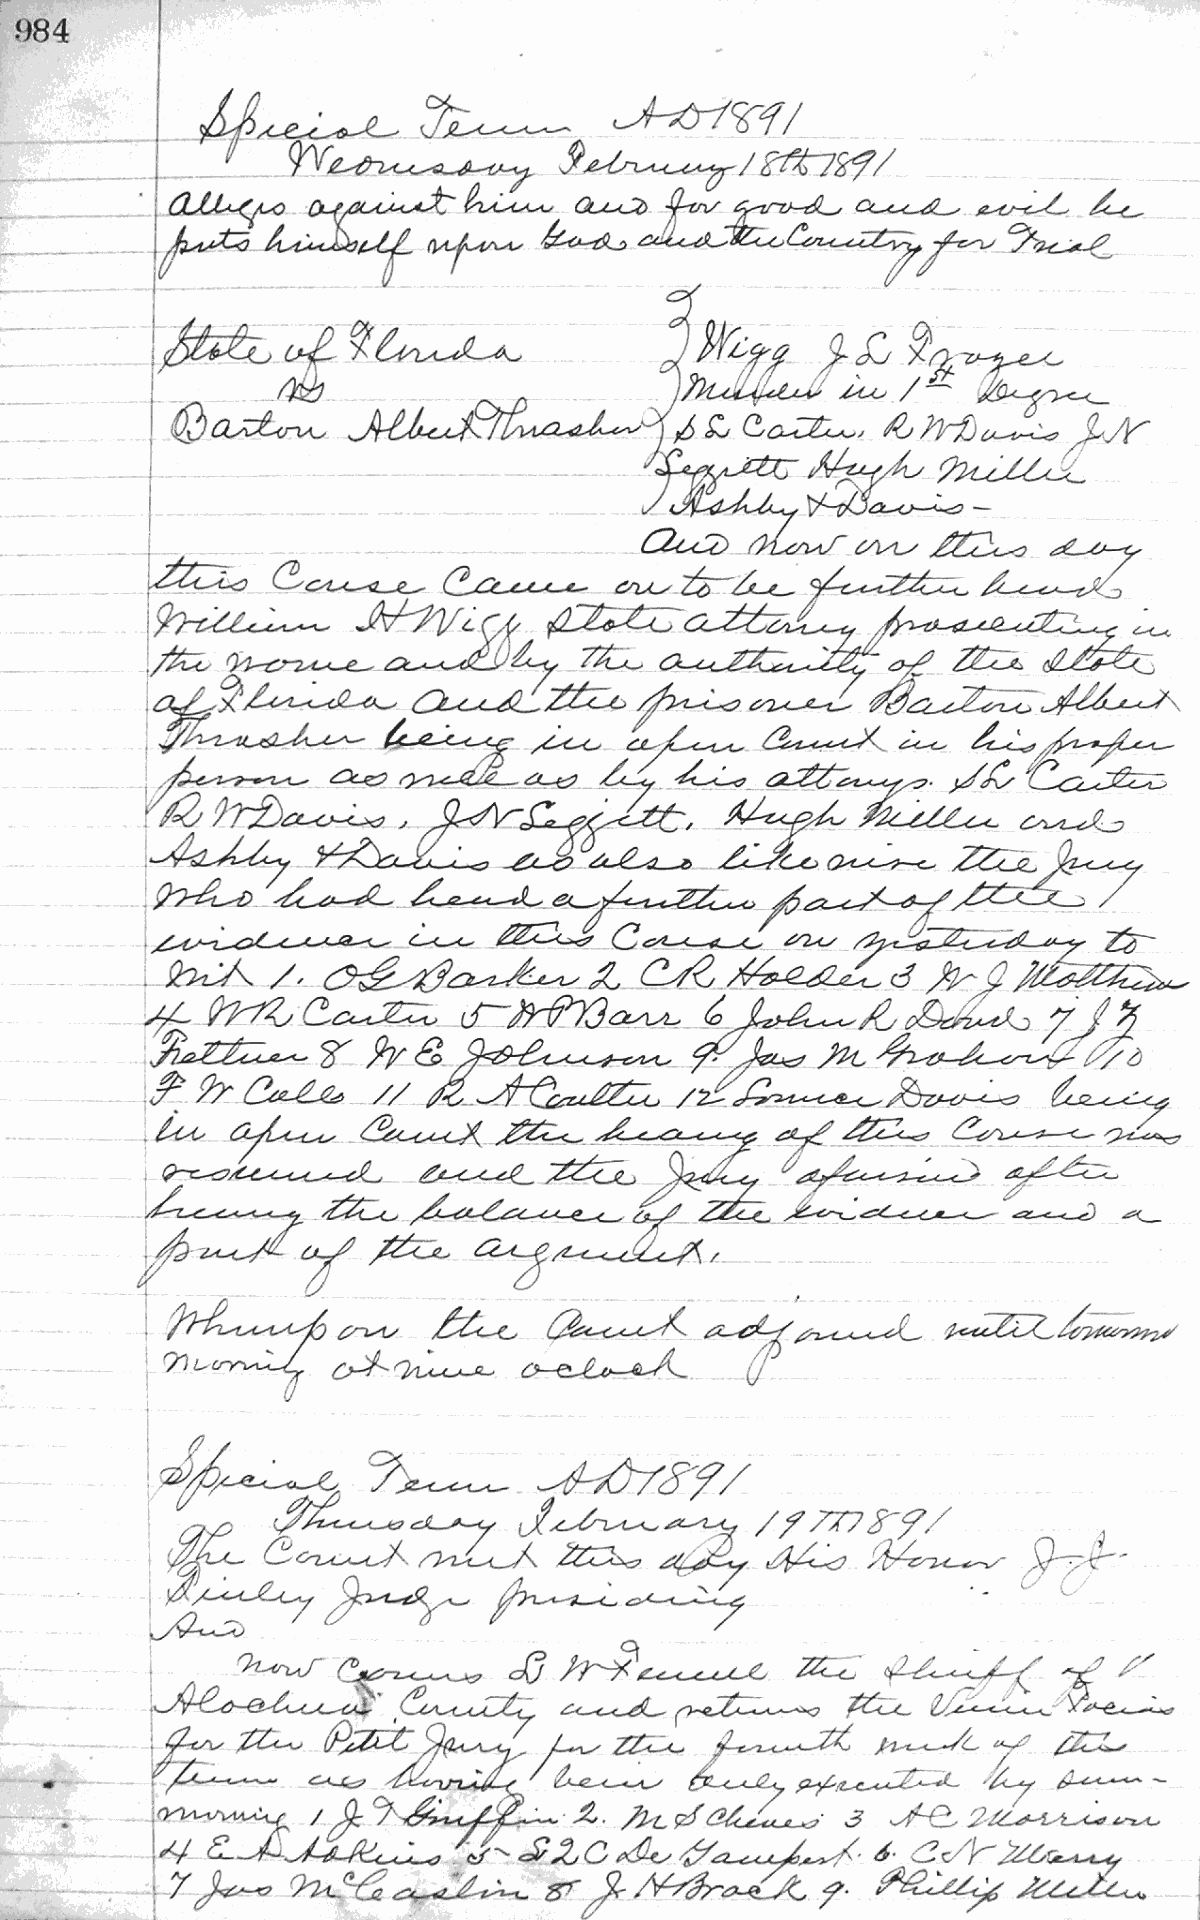 984
Special Term AD 1891
Wednesday February 18th 1891
alleges against him and for good and evil he
puts himself upon God and the Country for Trial
State of Florida } Wigg J L Frazer
vs } Murder in 1st Degree
Barton Albert Thrasher } S L Carter, R W Davis J N
Leggett Hugh Miller
Ashby & Davis -
And now on this day
this Cause Came on to be further heard
William H Wigg State attorney prosecuting in
the name and by the authority of the State
of Florida and the prisoner Barton Albert
Thrasher being in open Court in his proper
person as well as by his attorneys. S L Carter
R W Davis, J N Leggett, Hugh Miller and
Ashby & Davis as also likewise the Jury
who had heard a further part of the
evidence in this Cause on yesterday to
wit 1. O G Barker 2 C R Holder 3 W J Matthews
4 W R Carter 5 H P Barr 6 John R David 7 J Z
Fettner 8 W E Johnson 9. Jas M Graham 10
F W Cole 11 R A Coulter 12 Davis being
in open Court the hearing of this Cause was
resumed and the Jury after
hearing the balance of the evidence and a
part of the argument.
Whereupon the Court adjourned until tomorrow
morning at nine oclock
Special Term AD 1891
Thursday February 19th 1891
The Court met this day His Honor J. J.
Finley Judge presiding
And
now comes L W Fennell the Sheriff of
Alachua County and returns the Venire Facias
for the Petit Jury for the fourth week of this
term as having been duly executed by sum-
moning 1 J T Griffin 2. M S Cheves 3 A C Morrison
4 E A Adkins 5 C De 6. C N Merry
7 Jas McCaslin 8 J H Brock 9. Phillip Miller